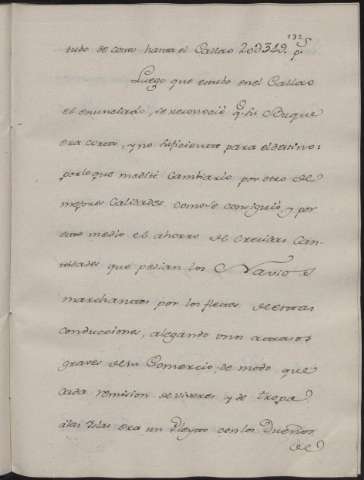 132
tubo de costo hasta el Callao 20@349. p.s
Luego que estubo en el Callao
el enunciado, se reconoció q.e su Buque
era corto, y no suficiente para el destino:
por lo que medité cambiarlo por otro de
mejores calidades como se consiguió, y por
este medio el ahorro de crecidas can-
tidades que pedian los Navios
marchantes por los fletes de estas
conducciones, alegando unos atrasos
graves de su Comercio, de modo, que
cada remision de viveres y de tropa
á las Yslas era un Pleyto con los Dueños
de